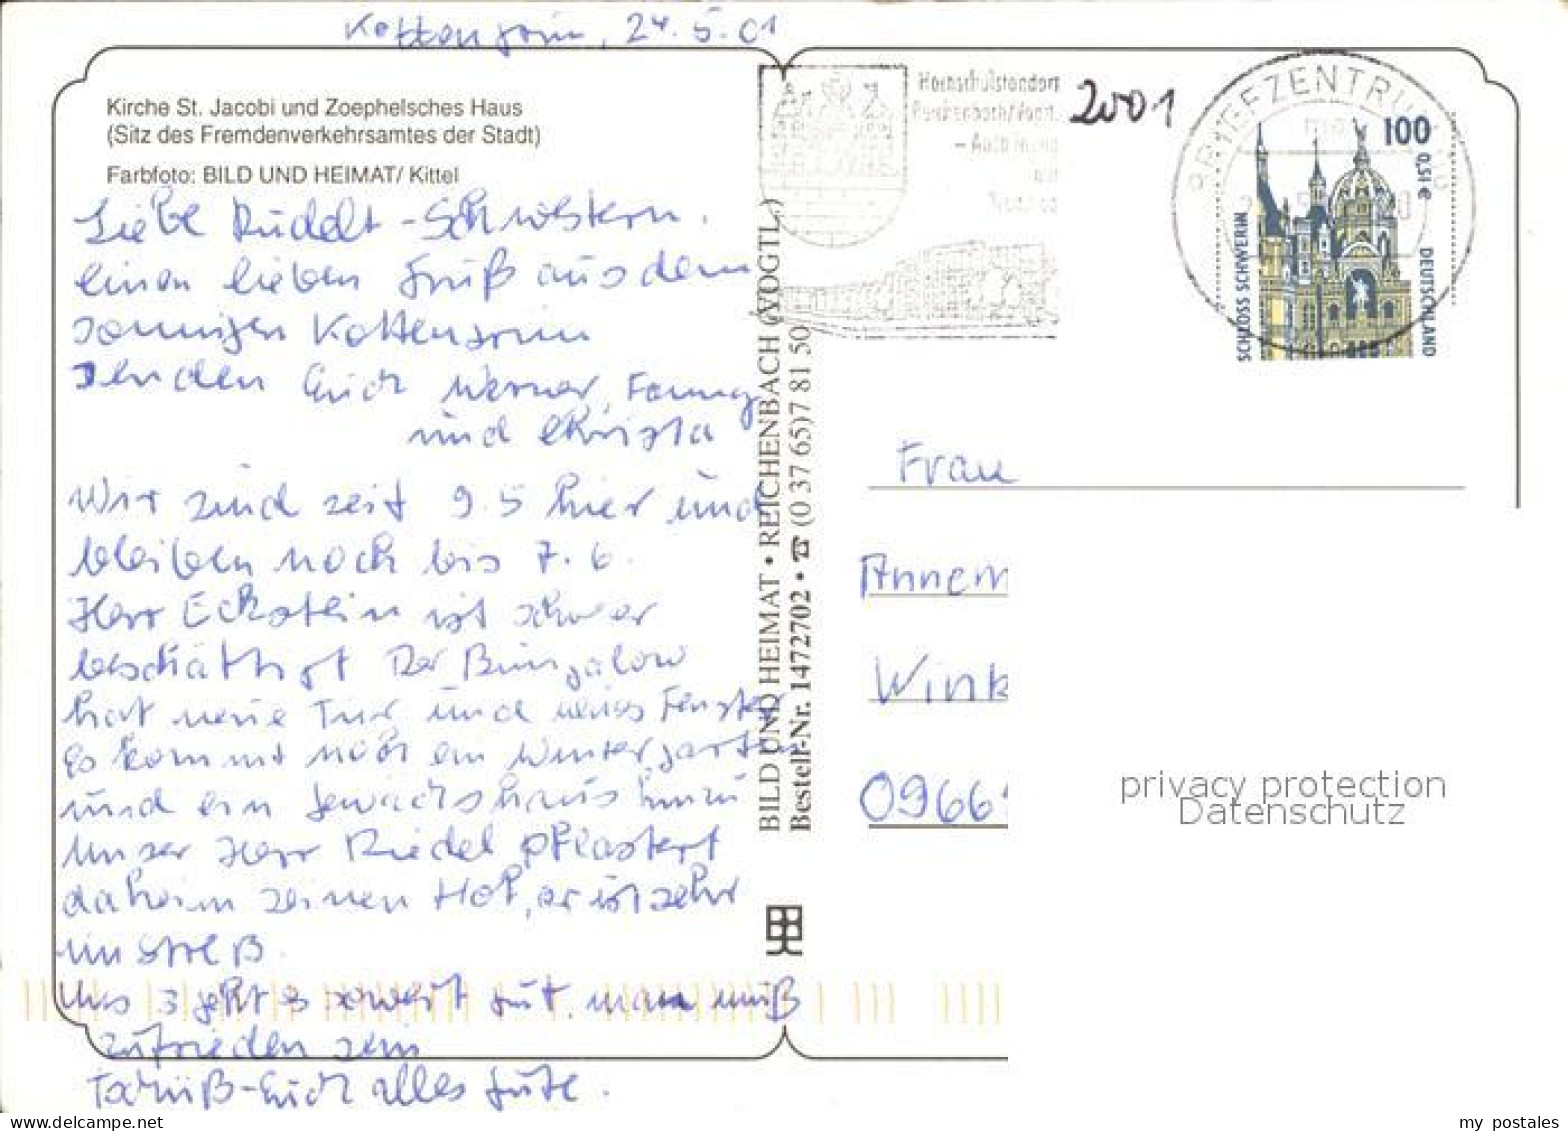 Kottengrün, 24.5.01
Kirche St. Jacobi und Zoephelsches Haus
(Sitz des Fremdenverkehrsamtes der Stadt)
Farbfoto: BILD UND HEIMAT/ Kittel
Liebe Rudelt-Schwestern,
einen lieben Gruß aus dem
sonnigen Kottengrün
senden Euch Werner, Fanny
und Christa
Wir sind seit 9.5 hier und
bleiben noch bis 7.6.
Herr Eckstein ist schwer
beschäftigt Der Bungalow
hat neue Tür und neues Fenster
Es kommt noch ein Wintergarten
und ein Gewächshaus hinzu
Unser Herr Riedel pflastert
daheim seinen Hof, er ist sehr
im Streß.
Uns 3 geht es soweit gut. man muß
zufrieden sein
Tschüß-Euch alles Gute.
BILD UND HEIMAT • REICHENBACH (VOGTL.)
Bestell-Nr. 1472702 • ☎ (0 37 65) 7 81 50
Hochschulstandort
Reichenbach/Vogtl.
2001
BRIEFZENTRUM
100
0,51€
SCHLOSS SCHWERIN
DEUTSCHLAND
Frau
Annem
Wink
0966
privacy protection
Datenschutz
my postales